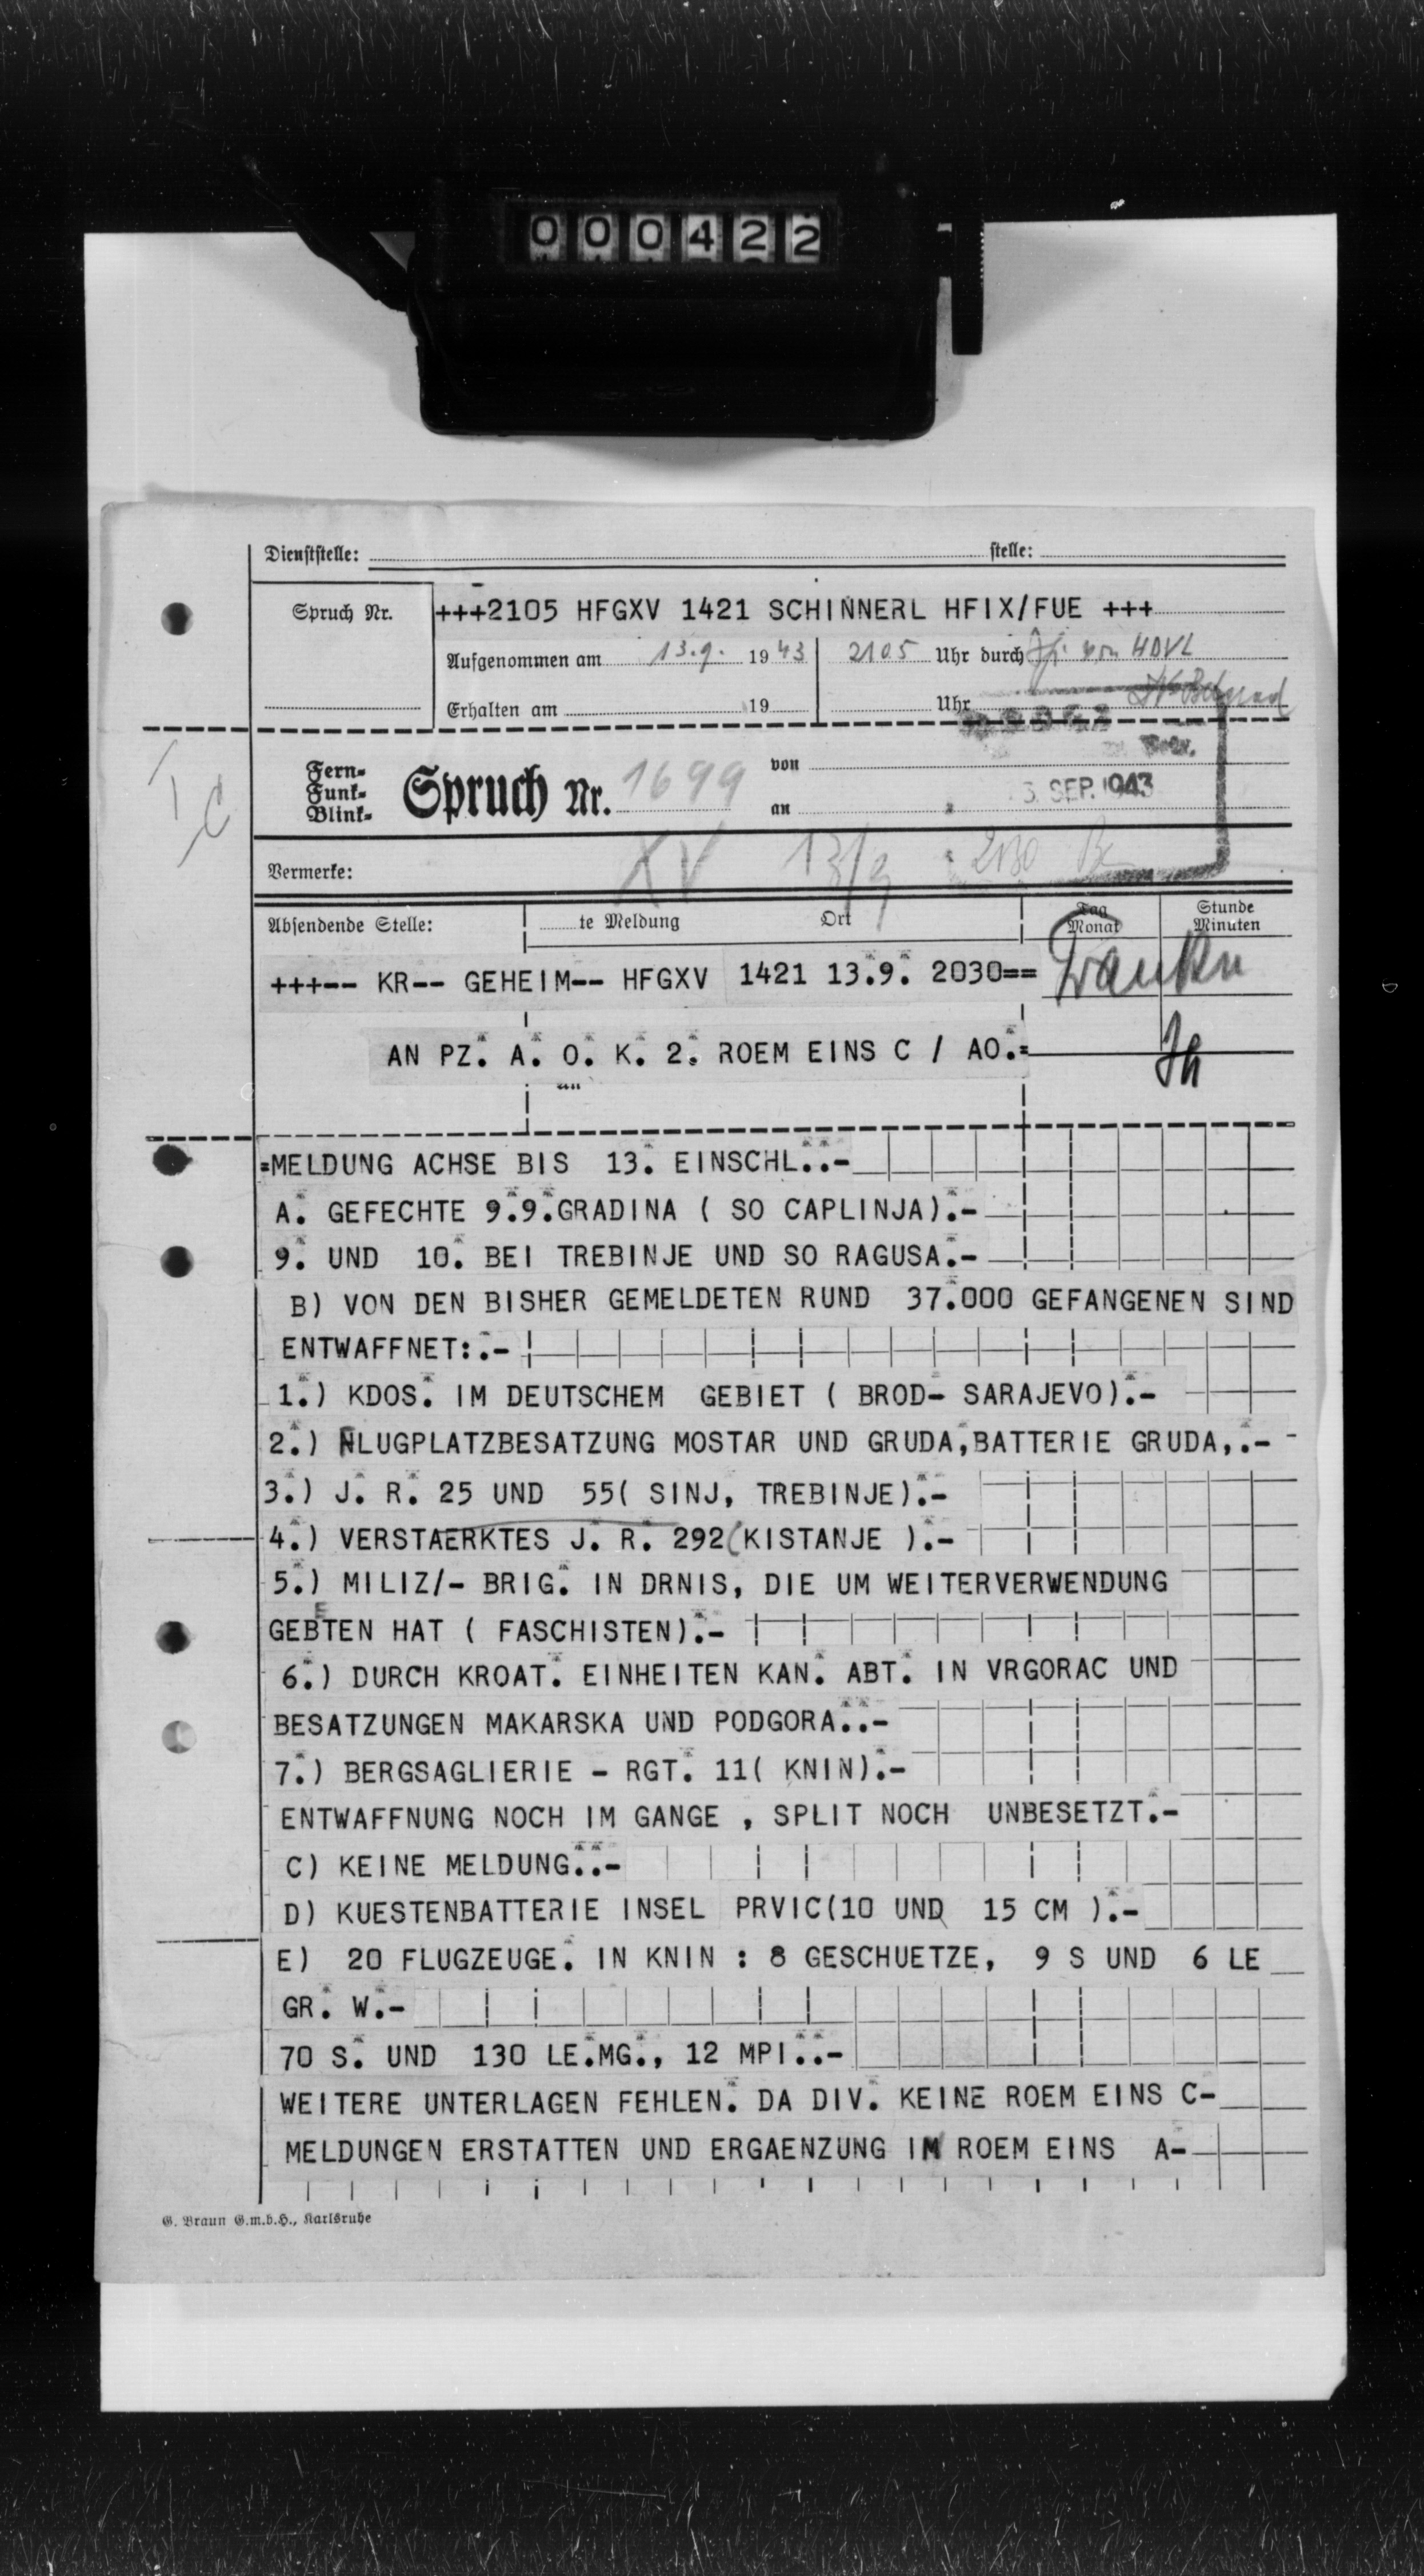 000422
Dienststelle: stelle:
Spruch Nr. +++2105 HFGXV 1421 SCHINNERL HFIX/FUE +++
Aufgenommen am 13.9. 1943 2105 Uhr durch von HDVL
Erhalten am 19 Uhr
Fern-
Funk-
Blink-
Spruch Nr. 1699
von
an
SEP. 1943
I c
Vermerke: XV 13/9 2130
Absendende Stelle: te Meldung Ort Tag Monat Stunde Minuten
+++-- KR-- GEHEIM-- HFGXV 1421 13.9. 2030==
AN PZ. A. O. K. 2. ROEM EINS C / AO.=
=MELDUNG ACHSE BIS 13. EINSCHL..-
A. GEFECHTE 9.9.GRADINA ( SO CAPLINJA).-
9. UND 10. BEI TREBINJE UND SO RAGUSA.-
B) VON DEN BISHER GEMELDETEN RUND 37.000 GEFANGENEN SIND
ENTWAFFNET:.-
1.) KDOS. IM DEUTSCHEM GEBIET ( BROD- SARAJEVO).-
2.) FLUGPLATZBESATZUNG MOSTAR UND GRUDA,BATTERIE GRUDA,.-
3.) J. R. 25 UND 55( SINJ, TREBINJE).-
4.) VERSTAERKTES J. R. 292(KISTANJE ).-
5.) MILIZ/- BRIG. IN DRNIS, DIE UM WEITERVERWENDUNG
GEBETEN HAT ( FASCHISTEN).-
6.) DURCH KROAT. EINHEITEN KAN. ABT. IN VRGORAC UND
BESATZUNGEN MAKARSKA UND PODGORA..-
7.) BERGSAGLIERIE - RGT. 11( KNIN).-
ENTWAFFNUNG NOCH IM GANGE , SPLIT NOCH UNBESETZT.-
C) KEINE MELDUNG..-
D) KUESTENBATTERIE INSEL PRVIC(10 UND 15 CM ).-
E) 20 FLUGZEUGE. IN KNIN : 8 GESCHUETZE, 9 S UND 6 LE
GR. W.-
70 S. UND 130 LE.MG., 12 MPI..-
WEITERE UNTERLAGEN FEHLEN. DA DIV. KEINE ROEM EINS C-
MELDUNGEN ERSTATTEN UND ERGAENZUNG IM ROEM EINS A-
G. Braun G.m.b.H., Karlsruhe